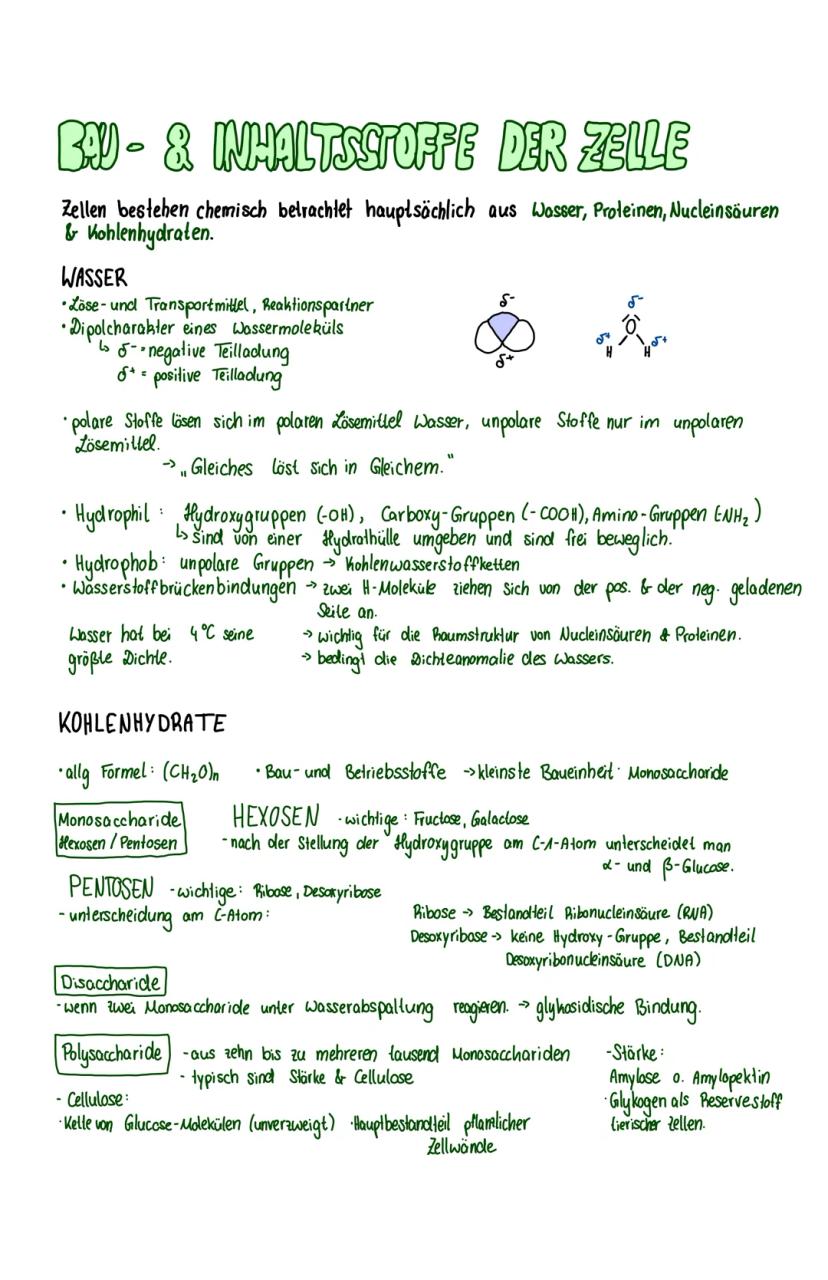 BAU- & INHALTSSTOFFE DER ZELLE
Zellen bestehen chemisch betrachtet hauptsächlich aus Wasser, Proteinen, Nucleinsäuren
& Kohlenhydraten.
WASSER
• Löse- und Transportmittel, Reaktionspartner
• Dipolcharakter eines Wassermoleküls
↳ δ⁻ = negative Teilladung
δ⁺ = positive Teilladung
δ⁻
δ⁺
δ⁻
δ⁺ O δ⁺
H H
• polare Stoffe lösen sich im polaren Lösemittel Wasser, unpolare Stoffe nur im unpolaren
Lösemittel.
→ „Gleiches löst sich in Gleichem."
• Hydrophil: Hydroxygruppen (-OH), Carboxy-Gruppen (-COOH), Amino-Gruppen (-NH₂)
↳ sind von einer Hydrathülle umgeben und sind frei beweglich.
• Hydrophob: unpolare Gruppen → Kohlenwasserstoffketten
• Wasserstoffbrückenbindungen → zwei H-Moleküle ziehen sich von der pos. & der neg. geladenen
Seite an.
Wasser hat bei 4°C seine → wichtig für die Raumstruktur von Nucleinsäuren & Proteinen.
größte Dichte. → bedingt die Dichteanomalie des Wassers.
KOHLENHYDRATE
• allg Formel: (CH₂O)n • Bau- und Betriebsstoffe → kleinste Baueinheit: Monosaccharide
Monosaccharide
Hexosen / Pentosen
HEXOSEN - wichtige: Fructose, Galactose
- nach der Stellung der Hydroxygruppe am C-1-Atom unterscheidet man
α- und β-Glucose.
PENTOSEN - wichtige: Ribose, Desoxyribose
- unterscheidung am C-Atom: Ribose → Bestandteil Ribonucleinsäure (RNA)
Desoxyribose → keine Hydroxy-Gruppe, Bestandteil
Desoxyribonucleinsäure (DNA)
Disaccharide
- wenn zwei Monosaccharide unter Wasserabspaltung reagieren. → glykosidische Bindung.
Polysaccharide - aus zehn bis zu mehreren tausend Monosacchariden
- typisch sind Stärke & Cellulose
- Cellulose:
• Kette von Glucose-Molekülen (unverzweigt) • Hauptbestandteil pflanzlicher
Zellwände
- Stärke:
Amylose o. Amylopektin
• Glykogen als Reservestoff
tierischer Zellen.